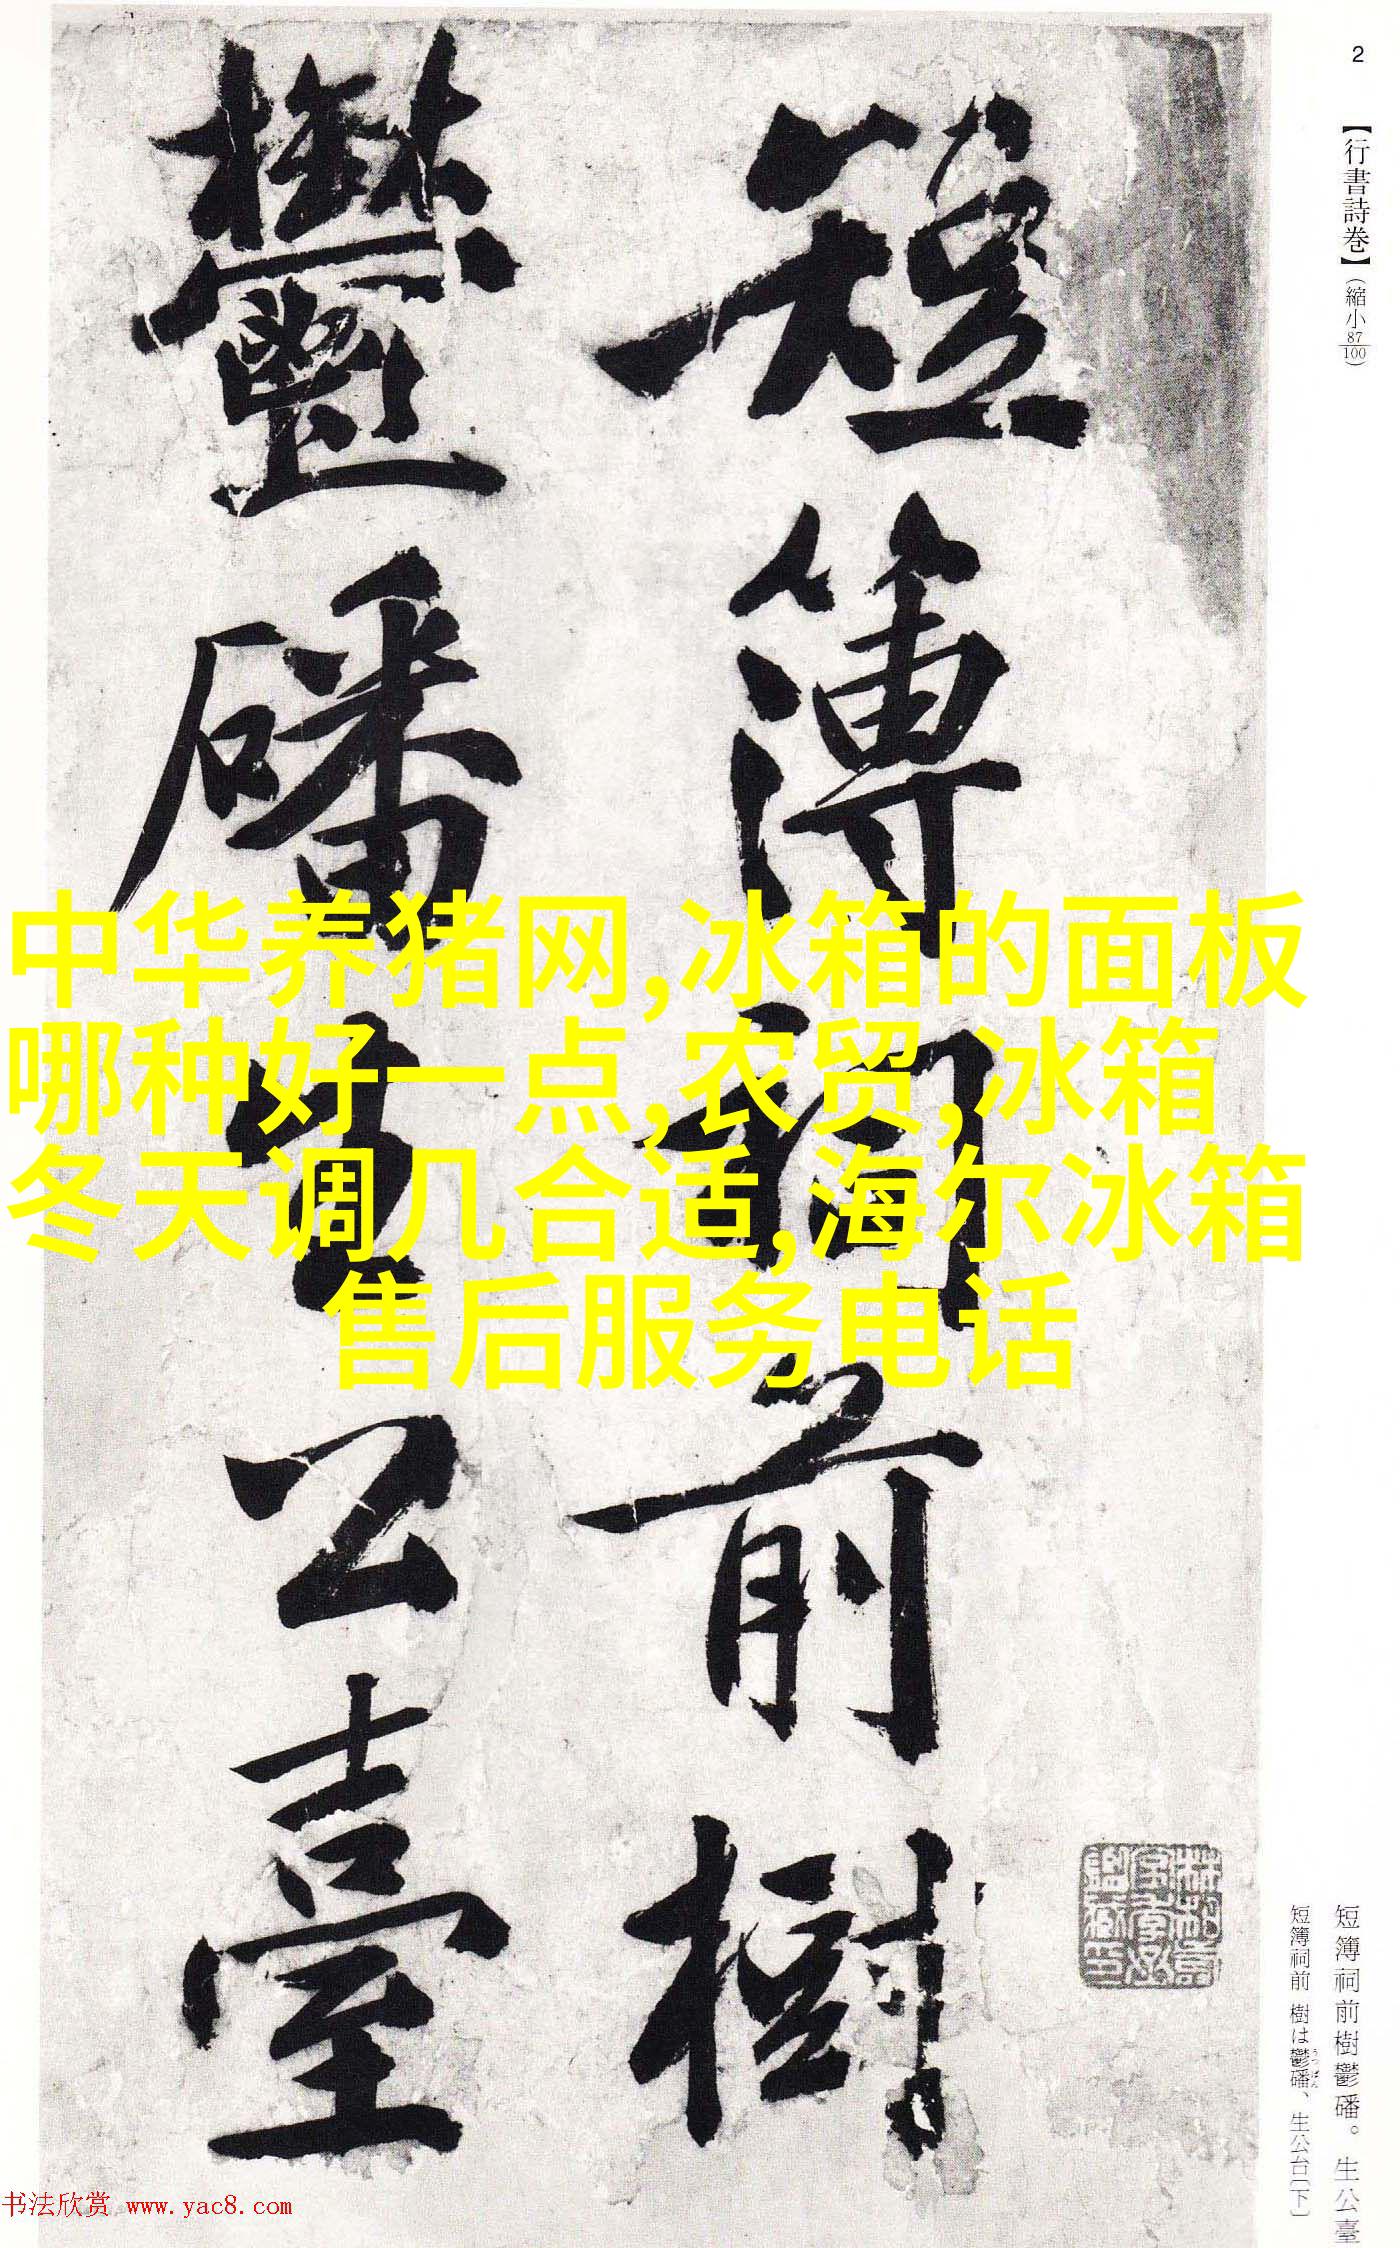 2
【行書詩巻】（縮小87/100）
短簿祠前樹
鬱磻生公臺
中华养猪网,冰箱的面板
哪种好一点,农贸,冰箱
冬天调几合适,海尔冰箱
售后服务电话
短簿祠前樹鬱磻。生公臺
短簿祠前 樹は鬱磻、生公台〔下〕
うっぱん
书法欣赏 www.yac8.com